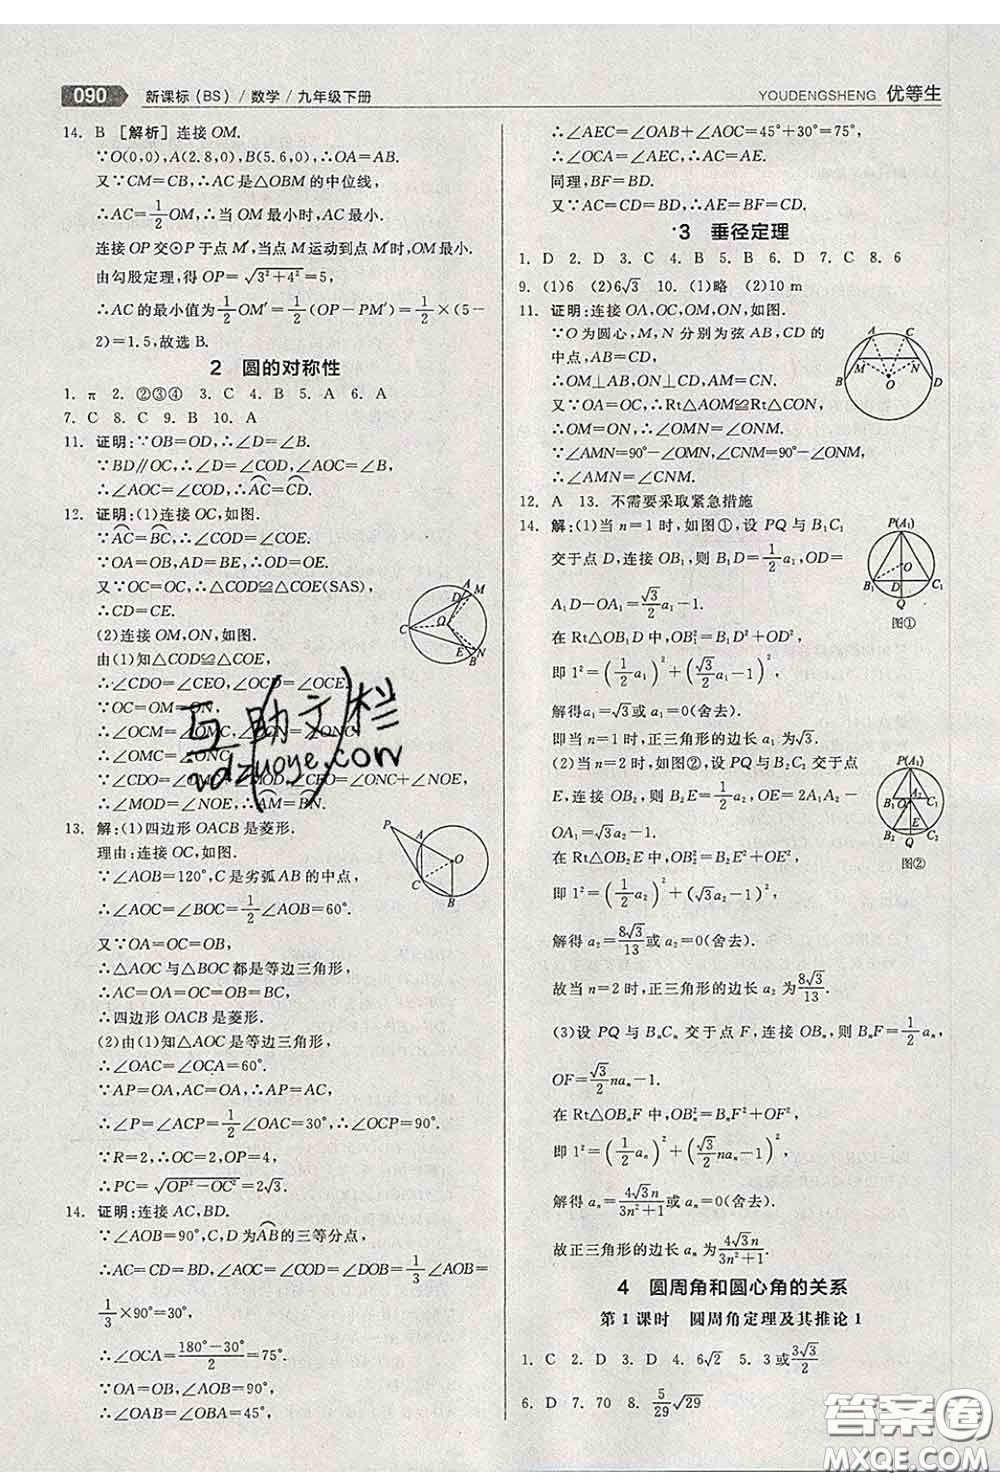 090 新课标(BS)/数学/九年级下册
YOUDENGSHENG 优等生
14. B [解析]连接OM.
∵O(0,0),A(2.8,0),B(5.6,0),∴OA=AB.
又∵CM=CB,∴AC是△OBM的中位线,
∴AC=1/2OM,∴当OM最小时,AC最小.
连接OP交⊙P于点M′,当点M运动到点M′时,OM最小.
由勾股定理,得OP=√(3²+4²)=5,
∴AC的最小值为1/2OM′=1/2(OP-PM′)=1/2×(5-
2)=1.5,故选B.
2 圆的对称性
1. π 2. ②③④ 3. C 4. B 5. A 6. A
7. C 8. C 9. B 10. A
11. 证明:∵OB=OD,∴∠D=∠B.
∵BD∥OC,∴∠D=∠COD,∠AOC=∠B,
∴∠AOC=∠COD,∴AC=CD.
12. 证明:(1)连接OC,如图.
∵AC=BC,∴∠COD=∠COE.
∵OA=OB,AD=BE,∴OD=OE.
又∵OC=OC,∴△COD≌△COE(SAS),
∴CD=CE.
(2)连接OM,ON,如图.
由(1)知△COD≌△COE,
∴∠CDO=∠CEO,∠OCD=∠OCE.
∵OC=OM=ON,
∴∠OCM=∠OMC,∠OCN=∠ONC,
∴∠OMC=∠ONC.
∵∠CDO=∠OMC+∠MOD,∠CEO=∠ONC+∠EON,
∴∠MOD=∠NOE,∴AM=BN.
A M D C O E N B
13. 解:(1)四边形OACB是菱形.
理由:连接OC,如图.
∵∠AOB=120°,C是劣弧AB的中点,
∴∠AOC=∠BOC=1/2∠AOB=60°.
又∵OA=OC=OB,
∴△AOC与△BOC都是等边三角形,
∴OA=AC=OC=OB=BC,
∴四边形OACB是菱形.
(2)由(1)知△AOC是等边三角形,
∴∠OAC=∠OCA=60°.
∵AP=OA,OA=AC,∴AP=AC,
∴∠P=∠ACP=1/2∠OAC=30°,∴∠OCP=90°.
∵R=2,∴OC=2,OP=4,
∴PC=√(OP²-OC²)=2√3.
P A O C B
14. 证明:连接AC,BD.
∵∠AOB=90°,C,D为AB的三等分点,
∴AC=CD=BD,∠AOC=∠BOD=1/3∠AOB=
1/3×90°=30°,
∴∠OCA=(180°-30°)/2=75°.
∵OA=OB,∠AOB=90°,
∴∠OAB=∠OBA=45°,
∴∠AEC=∠OAB+∠AOC=45°+30°=75°,
∴∠OCA=∠AEC,∴AC=AE.
同理,BF=BD.
又∵AC=CD=BD,∴AE=BF=CD.
*3 垂径定理
1. D 2. D 3. C 4. B 5. B 6. D 7. C 8. 6
9. (1)6 (2)6√3 10. (1)略 (2)10 m
11. 证明:连接OA,OC,OM,ON,如图.
∵O为圆心,M,N分别为弦AB,CD的
中点,AB=CD,
∴OM⊥AB,ON⊥CD,AM=CN.
又∵OA=OC,∴Rt△AOM≌Rt△CON,
∴OM=ON,∴∠OMN=∠ONM.
∵∠AMN=90°-∠OMN,∠CNM=90°-∠ONM,
∴∠AMN=∠CNM.
A C M N O B D
12. A 13. 不需要采取紧急措施
14. 解:(1)当n=1时,如图①,设PQ与B₁C₁
交于点D,连接OB₁,则B₁D=1/2a₁,OD=
A₁D-OA₁=√3/2a₁-1.
在Rt△OB₁D中,OB₁²=B₁D²+OD²,
即1²=(1/2a₁)²+(√3/2a₁-1)²,
解得a₁=√3或a₁=0(舍去).
即当n=1时,正三角形的边长a₁为√3.
P(A₁) O B₁ D C₁ Q
图①
(2)当n=2时,如图②,设PQ与B₂C₂交于点
E,连接OB₂,则B₂E=1/2a₂,OE=2A₁A₂-
OA₁=√3a₂-1.
在Rt△OB₂E中,OB₂²=B₂E²+OE²,
即1²=(1/2a₂)²+(√3a₂-1)²,
解得a₂=8√3/13或a₂=0(舍去).
故当n=2时,正三角形的边长a₂为8√3/13.
P(A₁) B₁ A₂ C₁ E B₂ Q C₂
图②
(3)设PQ与BₙCₙ交于点F,连接OBₙ,则BₙF=1/2aₙ,
OF=√3/2naₙ-1.
在Rt△OBₙF中,OBₙ²=BₙF²+OF²,
即1²=(1/2aₙ)²+(√3/2naₙ-1)²,
解得aₙ=4√3n/(3n²+1)或aₙ=0(舍去).
故正三角形的边长aₙ为4√3n/(3n²+1).
4 圆周角和圆心角的关系
第1课时 圆周角定理及其推论1
1. C 2. D 3. D 4. 6√2 5. 3或3√3/2
6. D 7. 70 8. 5/29√29
互助文栏
答案圈
MXQE.COM